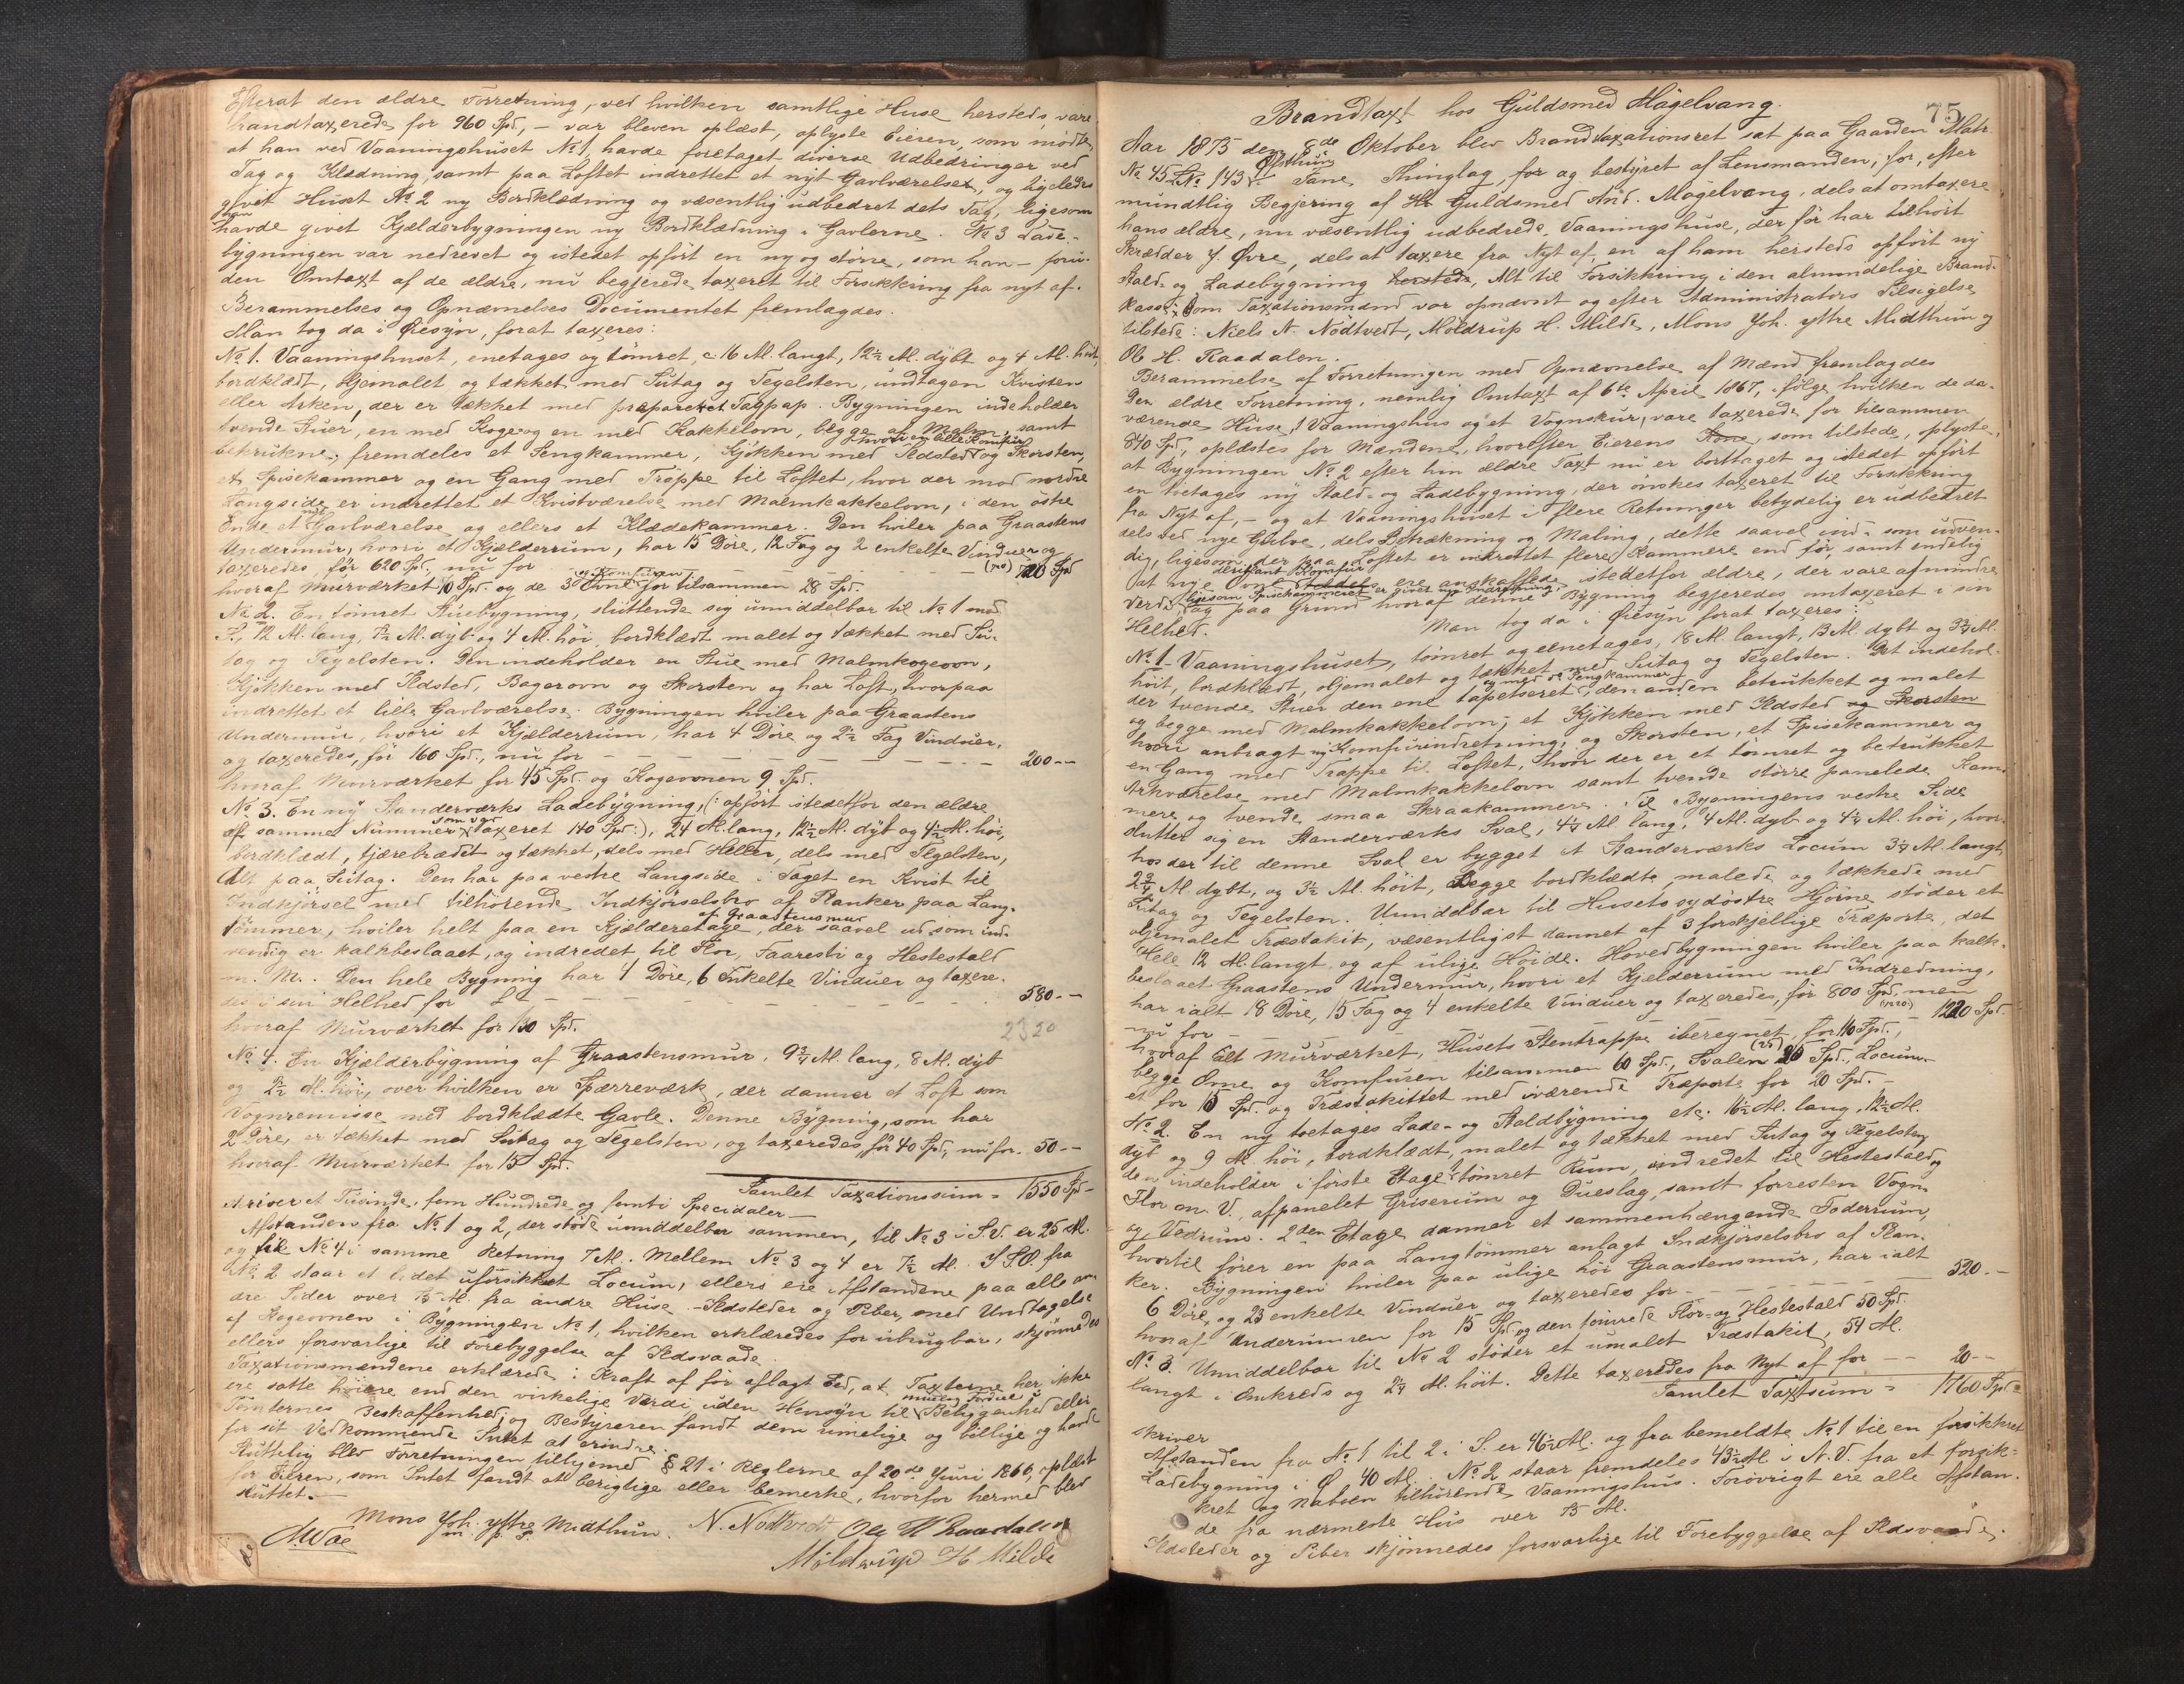 Efterat den ældre Forretning, ved hvilken samtlige Huse hersteds, vare
brandtaxerede for 960 Spd, – var bleven oplæst, oplyste Eieren, som mødte,
at han ved Vaaningshuset No 1, havde foretaget diverse Udbedringer ved
Tag og Klædning, samt paa Loftet indrettet et nyt Gavlværelse, og ligeledes
givet Huset No 2 ny Bordklædning og væsentlig udbedret dets Tag, ligesom
han
havde givet Kjælderbygningen ny Bordklædning i Gavlerne. No 3 Lade-
bygningen var nedrevet og istedet opført en ny og større, som han – foru-
den Omtaxt af de ældre, nu begjerede taxeret til Forsikkring fra nyt af.
Berammelses og Opnævnelses Documentet fremlagdes.
Man tog da i Øiesyn, forat taxeres:
No 1. Vaaningshuset, enetages og tømret, c 16 Al. langt, 12½ Al. dybt og 4 Al. høit,
bordklædt, oljemalet og tækket med Sutag og Tegelsten, undtagen Kvisten
eller Arken, der er tækket med præpareret Tagpap. Bygningen indeholder
tvende Stuer, en med Koge og en med Kakkelovn, begge af Malm, samt
hvori en lille Komfur
betrukne; fremdeles et Sengkammer, Kjøkken med Ildsted og Skorsten,
et Spisekammer og en Gang med Trappe til Loftet, hvor der mod nordre
Langside er indrettet et Kvistværelse med Malmkakkelovn, i den østre
Ende et nyt Gavlværelse og ellers et Klædekammer. Den hviler paa Graastens
Undermur, hvori et Kjælderrum, har 15 Døre, 12 Fag og 2 enkelte Vinduer og
taxeredes før 620 Spd, nu for – – – – (720) 720 Spd
og Komfuren
hvoraf Murværket 70 Spd. og de 3 Ovne for tilsammen 28 Spd.
No 2. En tømret Stuebygning, sluttende sig umiddelbar til No 1 mod
S., 12 Al. lang, 7½ Al. dyb og 4 Al. høi, bordklædt malet og tækket med Su-
tag og Tegelsten. Den indeholder en Stue med Malmkogeovn,
Kjøkken med Ildsted, Bagerovn og Skorsten og har Loft, hvorpaa
indrettet et lille Gavlværelse. Bygningen hviler paa Graastens
Undermur, hvori et Kjælderrum, har 4 Døre og 2½ Fag Vinduer,
og taxeredes, før 160 Spd., nu for – – – – – 200 – –
hvoraf Murværket for 45 Spd. og Kogeovnen 9 Spd.
No 3. En ny Standerværks Ladebygning, (: opført istedetfor den ældre
som var
af samme Nummer taxeret 140 Spd:), 24 Al. lang, 12½ Al. dyb og 4½ Al. høi,
bordklædt, tjærebrædet og tækket, dels med Heller, dels med Tegelsten,
Alt paa Sutag. Den har paa vestre Langside i Taget en Kvist til
Indkjørsel med tilhørende Indkjørselsbro af Planker paa Lang-
af Graastensmur
tømmer, hviler helt paa en Kjælderetage, der saavel ud som ind-
vendig er kalkbeslaaet, og indredet til Flor, Faaresti og Hestestald
m. M. Den hele Bygning har 4 Døre, 6 Enkelte Vinduer og taxere-
des i sin Helhed for – – – – – – 580 – –
hvoraf Murværket for 130 Spd.
2320
No 4. En Kjælderbygning af Graastensmur, 9¾ Al. lang, 8 Al. dyb
og 2½ Al. høi, over hvilken er Spærreværk, der danner et Loft som
Vognremisse med bordklædte Gavle. Denne Bygning, som har
2 Døre, er tækket med Sutag og Tegelsten, og taxeredes, før 40 Spd, nu for. 50 – –
hvoraf Murværket for 15 Spd.
Samlet Taxationssum = 1550 Spd –
skriver et Tusinde, fem Hundrede og femti Specidaler –
Afstanden fra No 1 og 2, der støde umiddelbar sammen, til No 3 i S.V. er 25 Al.
og til No 4 i samme Retning 7 Al. Mellem No 3 og 4 er 7½ Al. I S.O. fra
No 2 staar et lidet uforsikket Locum, ellers ere Afstandene paa alle an-
dre Sider over 75 Al. fra andre Huse. – Ildsteder og Piber, med Undtagelse
af Kogeovnen i Bygningen No 1, hvilken erklæredes for ubrugbar, skjønnedes
ellers forsvarlige til Forebyggelse af Ildsvaade.
Taxationsmændene erklærede i Kraft af før aflagt Ed, at Taxterne her ikke
ere satte høiere end den virkelige Værdi uden Hensyn til Beliggenhed eller
Tomternes Beskaffenhed; og Bestyreren fandt dem rimelige og billige og havde
for sit Vedkommende Intet at erindre.
Sluttelig blev Forretningen tilligemed § 21 i Reglerne af 20de Juni 1866, oplæst
for Eieren, som Intet fandt at berigtige eller bemærke, hvorfor hermed blev
sluttet. –
Mons Joh. yttre Midthun. N. Nøttvedt Ole H Raadalen
m. p. P.
AWae
Møldrup H Milde
75
Brandtaxt hos Guldsmed Magelvang.
Aar 1875 den 8de Oktober blev Brandtaxationsret sat paa Gaarden Matr.
Øfsthun
No 45 LNo 143 Fane Thinglag, for og bestyret af Lensmanden; for, efter
mundtlig Begjering af Hr Guldsmed And. Magelvang, dels at omtaxere
hans ældre, nu væsentlig udbedrede, Vaaningshuse, der før har tilhørt
Skrædder J. Øvre, dels at taxere fra Nyt af, en af ham hersteds opført ny
Stald- og Ladebygning hersteds, Alt til Forsikkring i den almindelige Brand-
kasse; Som Taxationsmænd var opnævnt og efter Administrators Tilsigelse
tilstede: Niels N. Nødtvedt, Møldrup H. Milde, Mons Joh. yttre Midthun og
Ole H. Raadalen.
Berammelse af Forretningen med Opnævnelse af Mænd fremlagdes
Den ældre Forretning, nemlig Omtaxt af 6te April 1867, ifølge hvilken de da-
værende Huse, 1 Vaaningshus og et Vognskur, vare taxerede for tilsammen
840 Spd, oplæstes for Mændene, hvorefter Eierens Kone, som tilstede, oplyste,
at Bygningen No 2 efter hin ældre Taxt nu er borttaget og istedet opført
en toetages ny Stald- og Ladebygning, der ønskes taxeret til Forsikkring
fra Nyt af, – og at Vaaningshuset i flere Retninger betydelig er udbedret
dels ved nye Gulve, dels Betrækning og Maling, dette saavel ind- som udven-
dig, ligesom der paa Loftet er indrettet flere Kammere end før, samt endelig
deriblandt Komfur
at nye Ovne ere anskaffede istedetfor ældre, der vare af mindre
ligesom Spisekammeret er givet ny Indredning
Værdi, paa Grund hvoraf denne Bygning begjeredes omtaxeret i sin
Helhed. Man tog da i Øiesyn forat taxeres:
No 1. Vaaningshuset, tømret og eenetages, 18 Al. langt, 13 Al. dybt og 3¾ Al.
høit, bordklædt, oljemalet og tækket med Sutag og Tegelsten. Det indehol-
og med et Sengkammer
der tvende Stuer den ene tapetseret, den anden betrukket og malet
og begge med Malmkakkelovn; et Kjøkken med Ildsted og Skorsten
hvori anbragt ny Komfurindretning, og Skorsten, et Spisekammer og
en Gang med Trappe til Loftet, hvor der er et tømret og betrukket
Arkværelse med Malmkakkelovn samt tvende større panelede Kam-
mere og tvende smaa Skraakammere. Til Bygningens vestre Side
slutter sig en Standerværks Sval, 4¼ Al. lang, 4 Al. dyb og 4¼ Al. høi, hvor-
hos der til denne Sval er bygget et Standerværks Locum 3¼ Al. langt,
2¾ Al. dybt, og 3½ Al. høit, Begge bordklædte, malede og tækkede med
Sutag og Tegelsten. Umiddelbar til Husets sydøstre Hjørne støder et
oljemalet Træstakit, væsentligst dannet af 3 forskjellige Træporte, det
Hele 12 Al. langt og af ulige Høide. Hovedbygningen hviler paa kalk-
beslaaet Graastens Undermur, hvori et Kjelderrum med Indredning,
har ialt 18 Døre, 15 Fag og 4 enkelte Vinduer og taxeredes, før 800 Spd, men
nu for – – – (1220) – 1220 Spd.
hvoraf alt Murværket, Husets Stentrappe iberegnet, for 110 Spd.,
begge Ovne og Komfuren tilsammen 60 Spd., Svalen (25) 25 Spd., Locum-
et for 15 Spd. og Træstakittet med iværende Træporte for 20 Spd. –
No 2. En ny toetages Lade- og Staldbygning etc. 16½ Al. lang, 12½ Al.
dyb og 9 Al. høi, bordklædt, malet og tækket med Sutag og Tegelsten,
den indeholder i første Etage tømret Rum, indredet til Hestestald og
Flor m. V., afpanelet Griserum og Dueslag, samt forresten Vogn-
og Vedrum. 2den Etage danner et sammenhængende Foderrum,
hvortil fører en paa Langtømmer anlagt Indkjørselsbro af Plan-
ker. Bygningen hviler paa ulige høi Graastensmur, har ialt
6 Døre, og 23 enkelte Vinduer og taxeredes for – – – 520. –
hvoraf Undermuren for 15 Spd og den tømrede Flor- og Hestestald 50 Spd.
No 3. Umiddelbar til No 2 støder et umalet Træstakit, 54 Al.
langt i Omkreds og 2¼ Al. høit. Dette taxeredes fra Nyt af for – – 20 – –
Samlet Taxtsum = 1760 Spd =
skriver
Afstanden fra No 1 til 2 i S. er 46½ Al. og fra bemeldte No 1 til en forsikkret
Ladebygning i Ø 40 Al. No 2 staar fremdeles 43½ Al i N.V. fra et forsik-
kret og Naboen tilhørende Vaaningshus. Forøvrigt ere alle Afstan-
de fra nærmeste Hus over 75 Al.
Ildsteder og Piber skjønnedes forsvarlige til Forebyggelse af Ildsvaade.